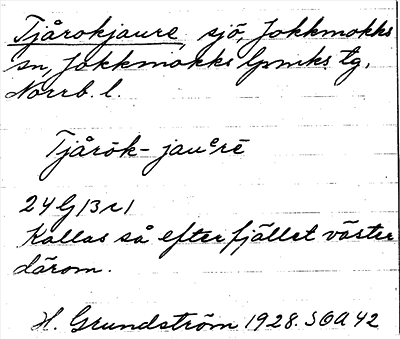 Tjårokjaure, sjö, Jokkmokks
sn, Jokkmokks lpmks tg,
Norrb. l.
Tjårōk-jauᵉrē
24G13r1
Kallas så efter fjället väster
därom.
H. Grundström 1928. SOA 42